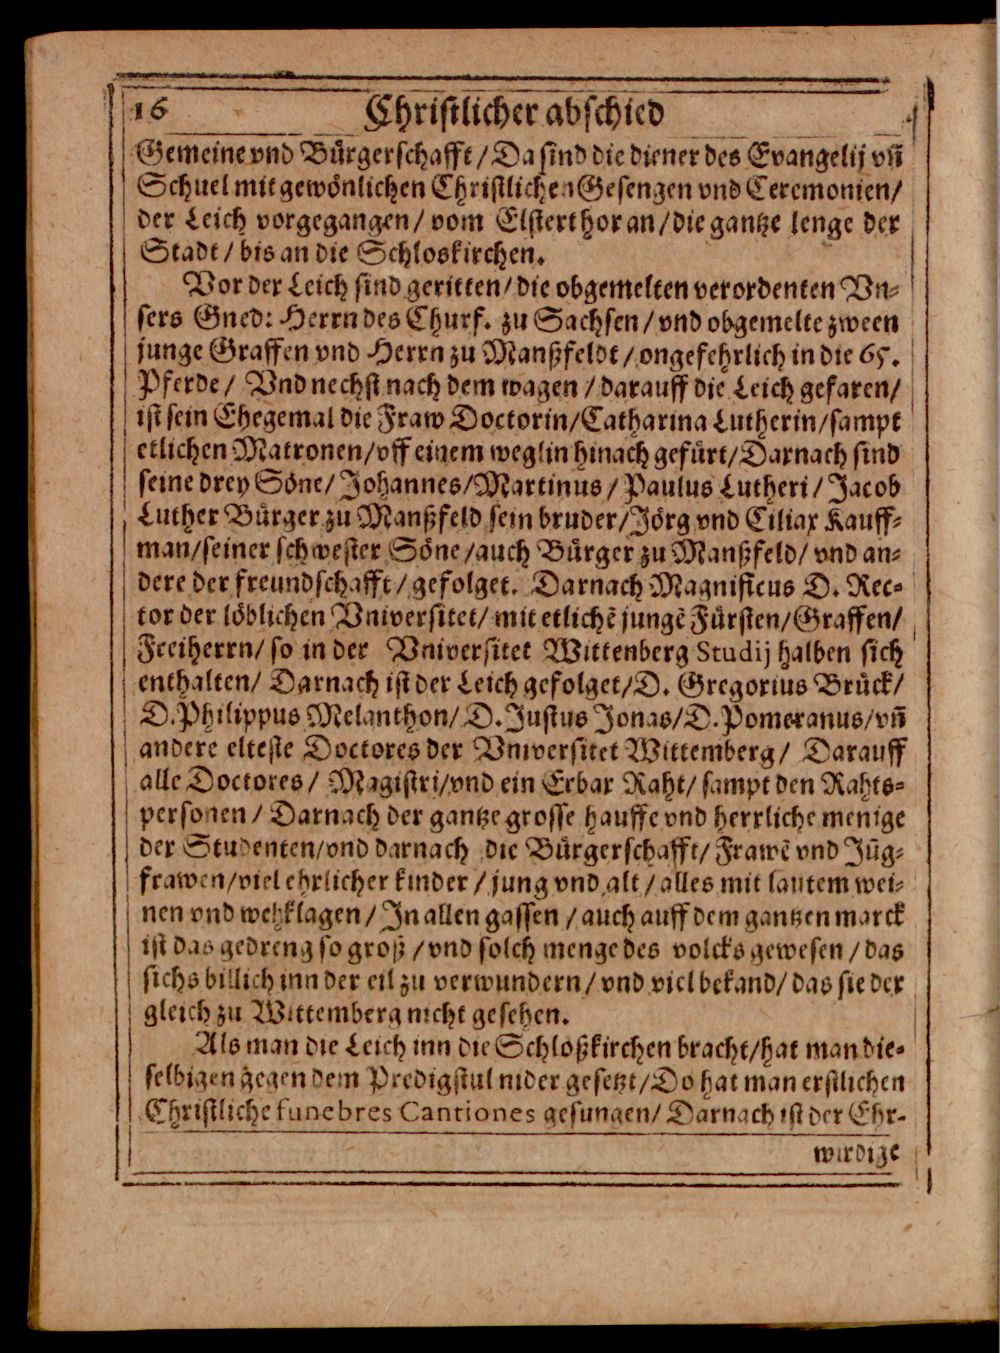 16 Christlicher abschied
Gemeine vnd Bürgerschafft / Da sind die diener des Evangelij vñ
Schuel mit gewönlichen Christlichen Gesengen vnd Ceremonien /
der Leich vorgegangen / vom Elsterthor an / die gantze lenge der
Stadt / bis an die Schloskirchen.
Vor der Leich sind geritten / die obgemelten verordenten Vn-
sers Gned: Herrn des Churf. zu Sachsen / vnd obgemelte zween
junge Graffen vnd Herrn zu Manßfeldt / ongefehrlich in die 65.
Pferde / Vnd nechst nach dem wagen / darauff die Leich gefaren /
ist sein Ehegemal die Fraw Doctorin / Catharina Lutherin / sampt
etlichen Matronen / vff einem weglin hinach gefürt / Darnach sind
seine drey Söne / Johannes / Martinus / Paulus Lutheri / Jacob
Luther Bürger zu Manßfeld sein bruder / Jörg vnd Ciliax Kauff-
man / seiner schwester Söne / auch Bürger zu Manßfeld / vnd an-
dere der freundschafft / gefolget. Darnach Magnificus D. Rec-
tor der löblichen Vniversitet / mit etlichẽ jungẽ Fürsten / Graffen /
Freiherrn / so in der Vniversitet Wittenberg Studij halben sich
enthalten / Darnach ist der Leich gefolget / D. Gregorius Brück /
D. Philippus Melanthon / D. Justus Jonas / D. Pomeranus / vñ
andere elteste Doctores der Vniversitet Wittemberg / Darauff
alle Doctores / Magistri / vnd ein Erbar Raht / sampt den Rahts-
personen / Darnach der gantze grosse hauffe vnd herrliche menige
der Studenten / vnd darnach die Bürgerschafft / Frawẽ vnd Jũg-
frawen / viel ehrlicher kinder / jung vnd alt / alles mit lautem wei-
nen vnd wehklagen / In allen gassen / auch auff dem gantzen marck
ist das gedreng so groß / vnd solch menge des volcks gewesen / das
sichs billich inn der eil zu verwundern / vnd viel bekand / das sie der
gleich zu Wittemberg nicht gesehen.
Als man die Leich inn die Schloßkirchen bracht / hat man die-
selbigen gegen dem Predigstul nider gesetzt / Do hat man erstlichen
Christliche funebres Cantiones gesungen / Darnach ist der Ehr-
wirdige